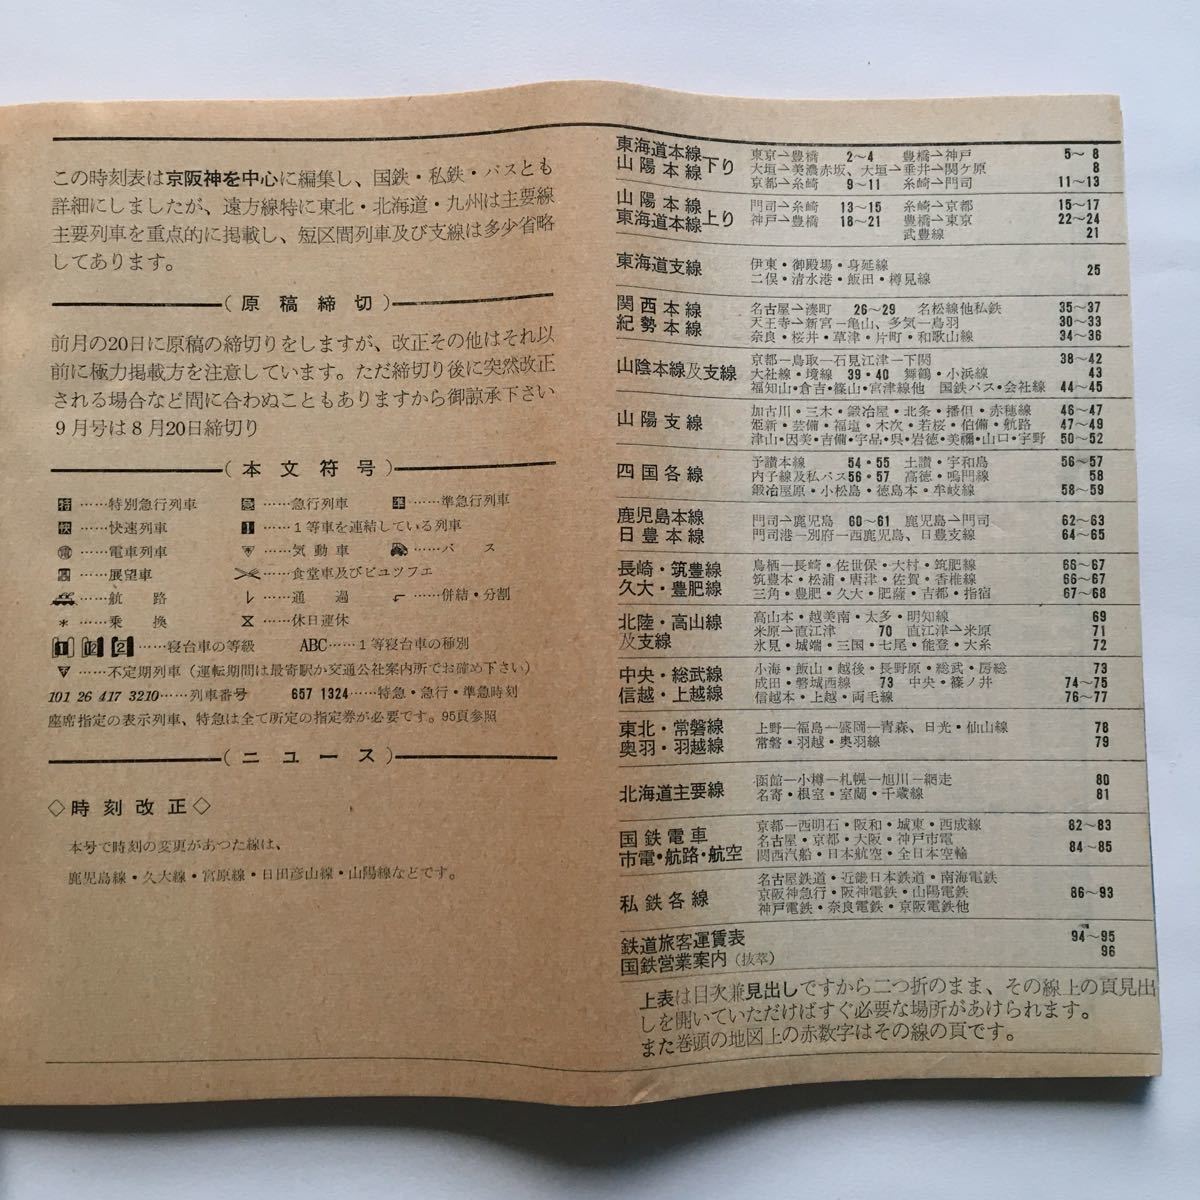 この時刻表は京阪神を中心に編集し、国鉄・私鉄・バスとも
詳細にしましたが、遠方線特に東北・北海道・九州は主要線
主要列車を重点的に掲載し、短区間列車及び支線は多少省略
してあります。
(原稿締切)
前月の20日に原稿の締切りをしますが、改正その他はそれ以
前に極力掲載方を注意しています。ただ締切り後に突然改正
される場合など間に合わぬこともありますから御諒承下さい
9月号は8月20日締切り
(本文符号)
特……特別急行列車 急……急行列車 準……準急行列車
快……快速列車 1……1等車を連結している列車
電……電車列車 ……気動車 ……バス
展……展望車 ……食堂車及びビユツフエ
……航路 レ……通過 ……併結・分割
*……乗換 ……休日運休
1 1/2 2……寝台車の等級 ABC……1等寝台車の種別
……不定期列車(運転期間は最寄駅か交通公社案内所でお確め下さい)
101 26 417 3210……列車番号 657 1324……特急・急行・準急時刻
座席指定の表示列車、特急は全て所定の指定券が必要です。95頁参照
(ニュース)
◇時刻改正◇
本号で時刻の変更があつた線は、
鹿児島線・久大線・宮原線・日田彦山線・山陽線などです。
東海道本線
山陽本線下り
東京→豊橋 2~4 豊橋→神戸 5~8
大垣→美濃赤坂、大垣→垂井→関ケ原 8
京都→糸崎 9~11 糸崎→門司 11~13
山陽本線
東海道本線上り
門司→糸崎 13~15 糸崎→京都 15~17
神戸→豊橋 18~21 豊橋→東京 22~24
武豊線 21
東海道支線
伊東・御殿場・身延線
二俣・清水港・飯田・樽見線 25
関西本線
紀勢本線
名古屋→湊町 26~29 名松線他私鉄 35~37
天王寺→新宮―亀山、多気―鳥羽 30~33
奈良・桜井・草津・片町・和歌山線 34~36
山陰本線及支線
京都―鳥取―石見江津―下関 38~42
大社線・境線 39・40 舞鶴・小浜線 43
福知山・倉吉・篠山・宮津線他 国鉄バス・会社線 44~45
山陽支線
加古川・三木・鍛冶屋・北条・播但・赤穂線 46~47
姫新・芸備・福塩・木次・若桜・伯備・航路 47~49
津山・因美・吉備・宇品・呉・岩徳・美禰・山口・宇野 50~52
四国各線
予讃本線 54・55 土讃・宇和島 56~57
内子線及私バス56・57 高徳・鳴門線 58
鍛冶屋原・小松島・徳島本・牟岐線 58~59
鹿児島本線
日豊本線
門司→鹿児島 60~61 鹿児島→門司 62~63
門司港―別府―西鹿児島、日豊支線 64~65
長崎・筑豊線
久大・豊肥線
鳥栖―長崎・佐世保・大村・筑肥線 66~67
筑豊本・松浦・唐津・佐賀・香椎線 66~67
三角・豊肥・久大・肥薩・吉都・指宿 67~68
北陸・高山線
及支線
高山本・越美南・太多・明知線 69
米原→直江津 70 直江津→米原 71
氷見・城端・三国・七尾・能登・大糸 72
中央・総武線
信越・上越線
小海・飯山・越後・長野原・総武・房総 73
成田・磐城西線 73 中央・篠ノ井 74~75
信越本・上越・両毛線 76~77
東北・常磐線
奥羽・羽越線
上野―福島―盛岡―青森、日光・仙山線 78
常磐・羽越・奥羽線 79
北海道主要線
函館―小樽―札幌―旭川―網走 80
名寄・根室・室蘭・千歳線 81
国鉄電車
市電・航路・航空
京都―西明石・阪和・城東・西成線 82~83
名古屋・京都・大阪・神戸市電
関西汽船・日本航空・全日本空輸 84~85
私鉄各線
名古屋鉄道・近畿日本鉄道・南海電鉄
京阪神急行・阪神電鉄・山陽電鉄 86~93
神戸電鉄・奈良電鉄・京阪電鉄他
鉄道旅客運賃表 94~95
国鉄営業案内(抜萃) 96
上表は目次兼見出しですから二つ折のまま、その線上の頁見出
しを開いていただけばすぐ必要な場所があけられます。
また巻頭の地図上の赤数字はその線の頁です。